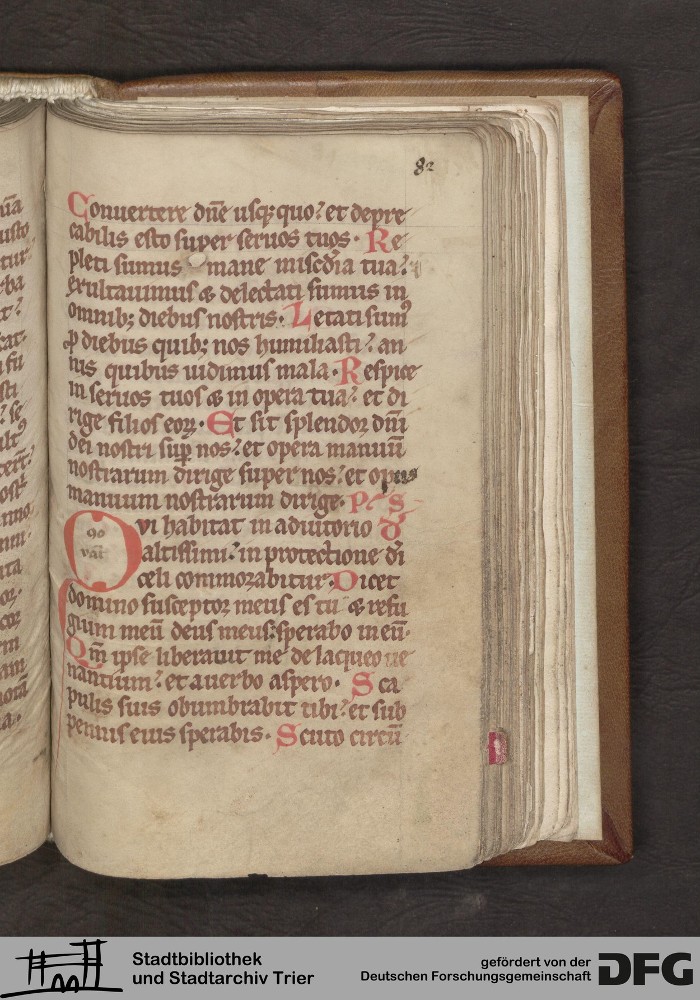 82
Conuertere dn̄e usq; quo? et depre
cabilis esto super seruos tuos. Re
pleti sumus mane misc̄dia tua?
exultauimus & delectati sumus in
omnib; diebus nostris. Letati sumꝰ
ꝓ diebus quib; nos humiliasti? an
nis quibus uidimus mala. Respice
in seruos tuos & in opera tua? et di
rige filios eoꝝ. Et sit splendor dn̄i
dei nostri sup̄ nos? et opera manuū
nostrarum dirige super nos? et opus
manuum nostrarum dirige. P S
Qui habitat in adiutorio
altissimi? in protectione di̅
celi commorabitur. Dicet
domino susceptor meus es tu & refu
gium meū deus meus: sperabo in eū.
Qm̄ ipse liberauit me de laqueo ue
nantium? et a uerbo aspero. Sca
pulis suis obumbrabit tibi? et sub
pennis eius sperabis. Scuto circū
Stadtbibliothek
und Stadtarchiv Trier
gefördert von der
Deutschen Forschungsgemeinschaft DFG